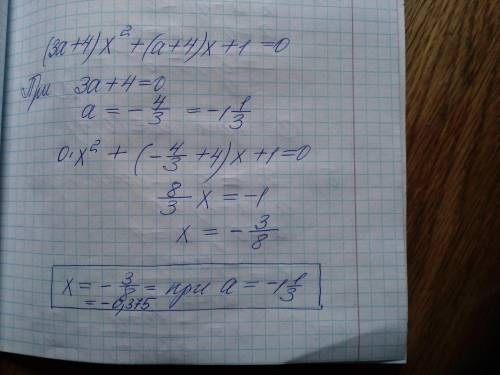 (3a+4)x² + (a+4)x + 1 = 0
При 3a+4=0
a = -4/3 = -1 1/3
0·x² + (-4/3 + 4)x + 1 = 0
8/3 x = -1
x = -3/8
x = -3/8 = при a = -1 1/3
= -0,375